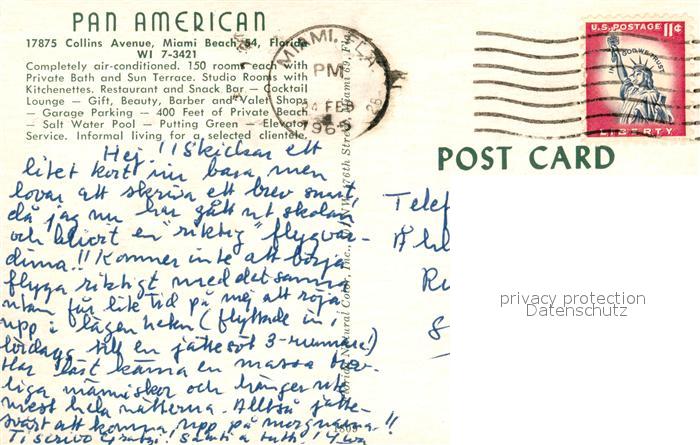 PAN AMERICAN
17875 Collins Avenue, Miami Beach 54, Florida
WI 7-3421
Completely air-conditioned. 150 rooms each with
Private Bath and Sun Terrace. Studio Rooms with
Kitchenettes. Restaurant and Snack Bar — Cocktail
Lounge — Gift, Beauty, Barber and Valet Shops
— Garage Parking — 400 Feet of Private Beach
— Salt Water Pool — Putting Green — Elevator
Service. Informal living for a selected clientele.
MIAMI, FLA.
PM
FEB
196
U.S. POSTAGE 11¢
IN GOD WE TRUST
LIBERTY
POST CARD
Hej!! Skickar ett
litet kort nu bara men
lovar att skriva ett brev snart,
då jag nu har gått ut skolan
och blivit en "riktig" flygvär-
dinna!! Kommer inte att börja
flyga riktigt med det samma
utan får lite tid på mej att röja
upp i lägenheten (flyttade in i
lördags till en jättesöt 3-rummare!)
Har läst känna en massa trev-
liga människor och hänger ute
mest hela nätterna. Alltså jätte-
svårt att komma upp på morgnarna!!
Ti scrivo Saluti a tutti!
Natural Color, Inc., N.W. 176th Street, Miami 69, Fla.
Telef
Ru
S
privacy protection
Datenschutz